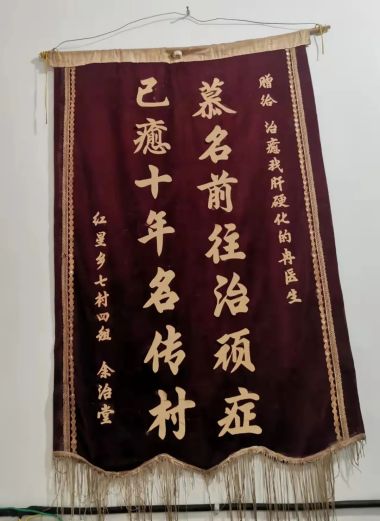 赠给 治癒我肝硬化的冉医生
慕名前往治顽症
已癒十年名传村
红星乡七村四组 余治堂